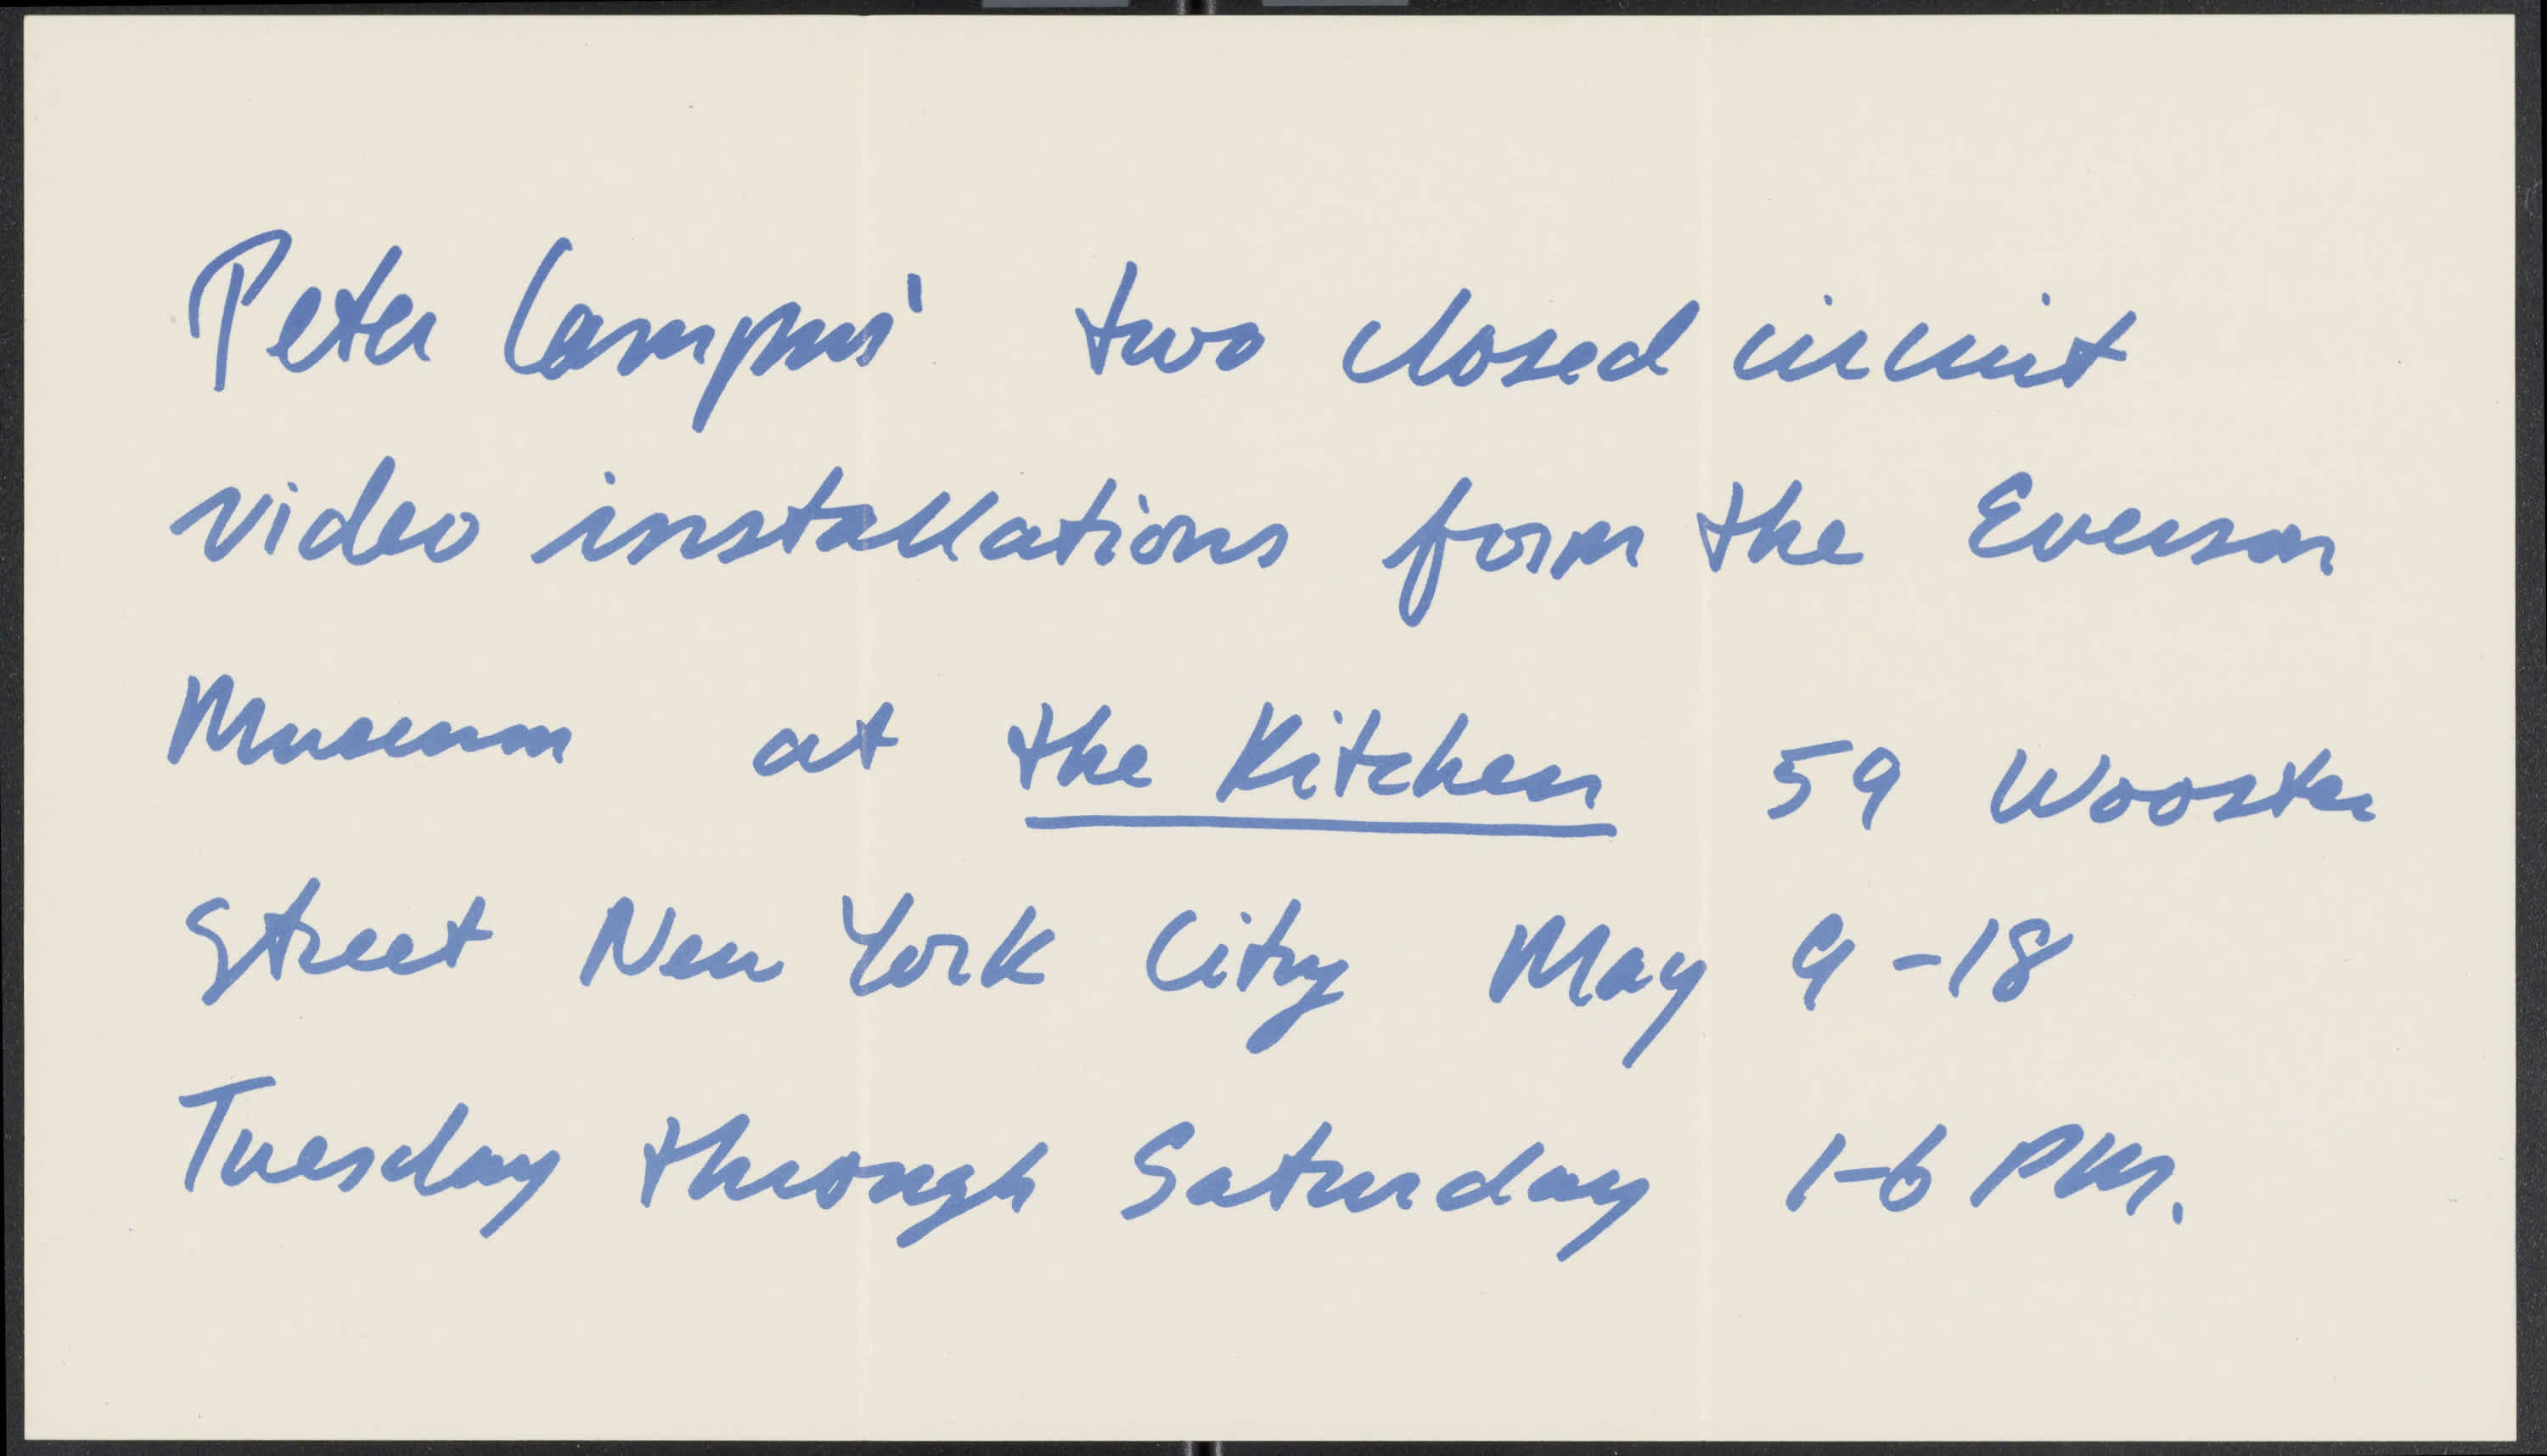 Peter Campus' two closed circuit
video installations form the Everson
Museum at the Kitchen 59 Wooster
Street New York City May 9-18
Tuesday through Saturday 1-6 PM.